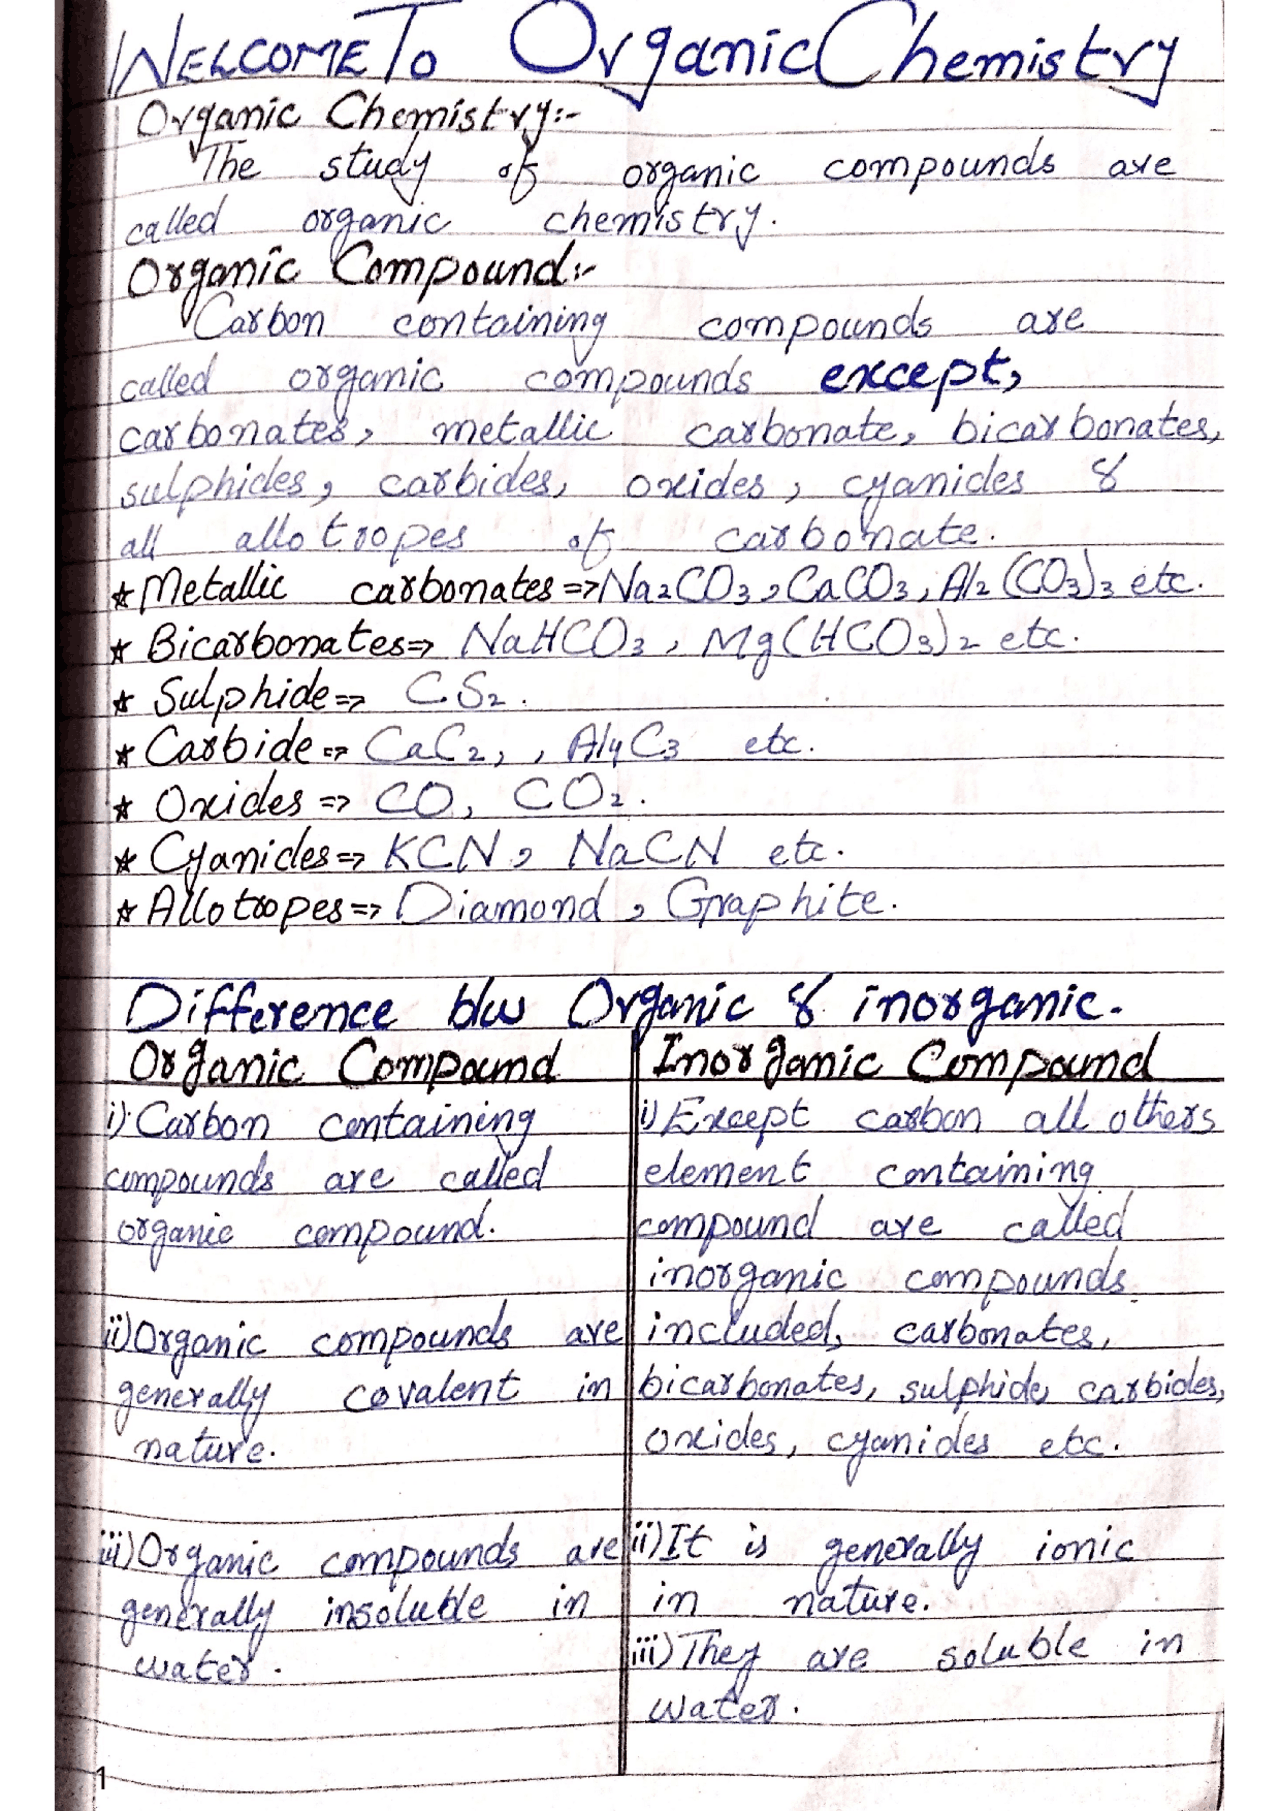 WELCOME To Organic Chemistry
Organic Chemistry:-
The study of organic compounds are
called organic chemistry.
Organic Compound:-
Carbon containing compounds are
called organic compounds except,
carbonates, metallic carbonate, bicarbonates,
sulphides, carbides, oxides, cyanides &
all allotropes of carbonate.
★ Metallic carbonates => Na2CO3, CaCO3, Al2(CO3)3 etc.
★ Bicarbonates => NaHCO3, Mg(HCO3)2 etc.
★ Sulphide => CS2.
★ Carbide => CaC2, , Al4C3 etc.
★ Oxides => CO, CO2.
★ Cyanides => KCN, NaCN etc.
★ Allotropes => Diamond, Graphite.
Difference b/w Organic & inorganic.
Organic Compound
i) Carbon containing
compounds are called
organic compound.
ii) Organic compounds are
generally covalent in
nature.
iii) Organic compounds are
generally insoluble in
water.
Inorganic Compound
i) Except carbon all others
element containing
compound are called
inorganic compounds.
included, carbonates,
bicarbonates, sulphide, carbides,
oxides, cyanides etc.
ii) It is generally ionic
in nature.
iii) They are soluble in
water.
1